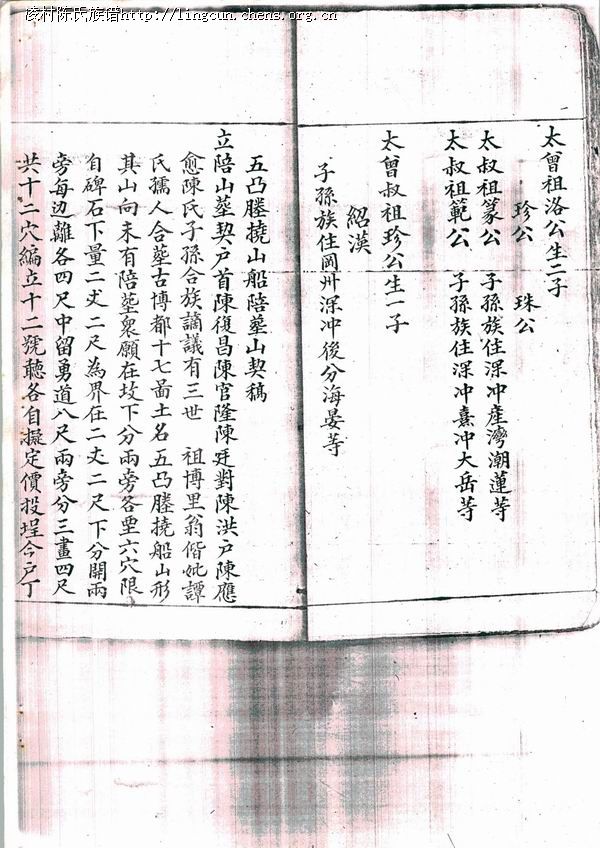 凌村陈氏族谱http://lingcun.chens.org.cn
太曾祖洛公生二子
珍公 珠公
太叔祖篆公 子孫族住深冲産灣潮蓮等
太叔祖範公 子孫族住深冲熹冲大岳等
太曾叔祖珍公生一子
紹漢
子孫族住岡州深冲後分海晏等
五凸塍撓山船陪墓山契稿
立陪山塟契戶首陳復昌陳官隆陳廷對陳洪戶陳應
愈陳氏子孫合族謪議有三世 祖博里翁偕妣譚
氏孺人合塟古博都十七啚土名五凸塍撓船山形
其山向未有陪塟衆願在坟下分兩旁各垔六穴限
自碑石下量二丈二尺為界在二丈二尺下分開兩
旁每边離各四尺中留勇道八尺兩旁分三畫四尺
共十二穴編立十二號聽各自擬定價投埕今戶丁